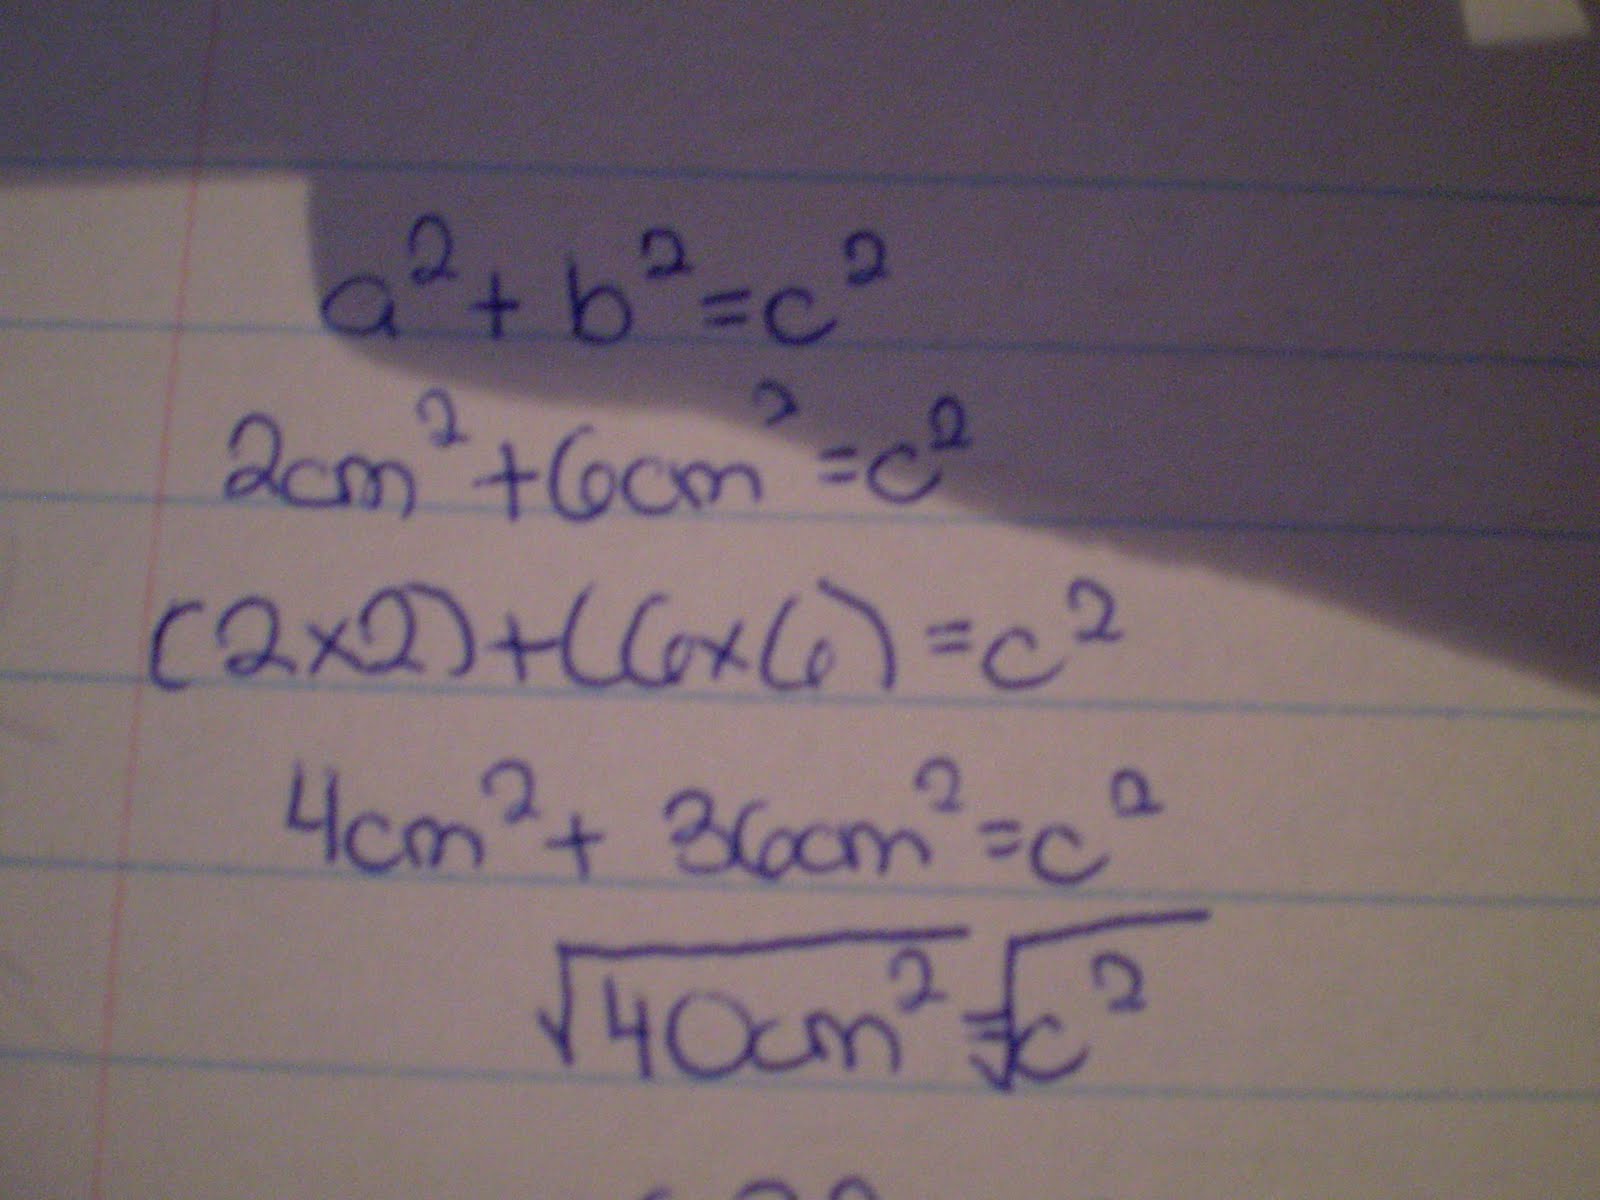 a² + b² = c²
2cm² + 6cm² = c²
(2×2) + (6×6) = c²
4cm² + 36cm² = c²
√40cm² = √c²